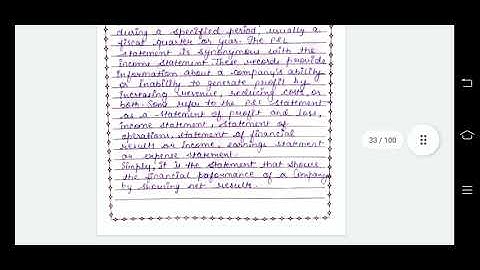 during a specified period, usually a
fiscal quarter or year. The P&L
statement is synonymous with the
income statement. These records provide
information about a company's ability
or inability to generate profit by
increasing revenue, reducing costs, or
both. Some refer to the P&L statement
as a statement of profit and loss,
income statement, statement of
operations, statement of financial
results or income, earnings statement
or expense statement.
Simply, it is the statement that shows
the financial paformance of a Company
by showing net results.
33 / 100